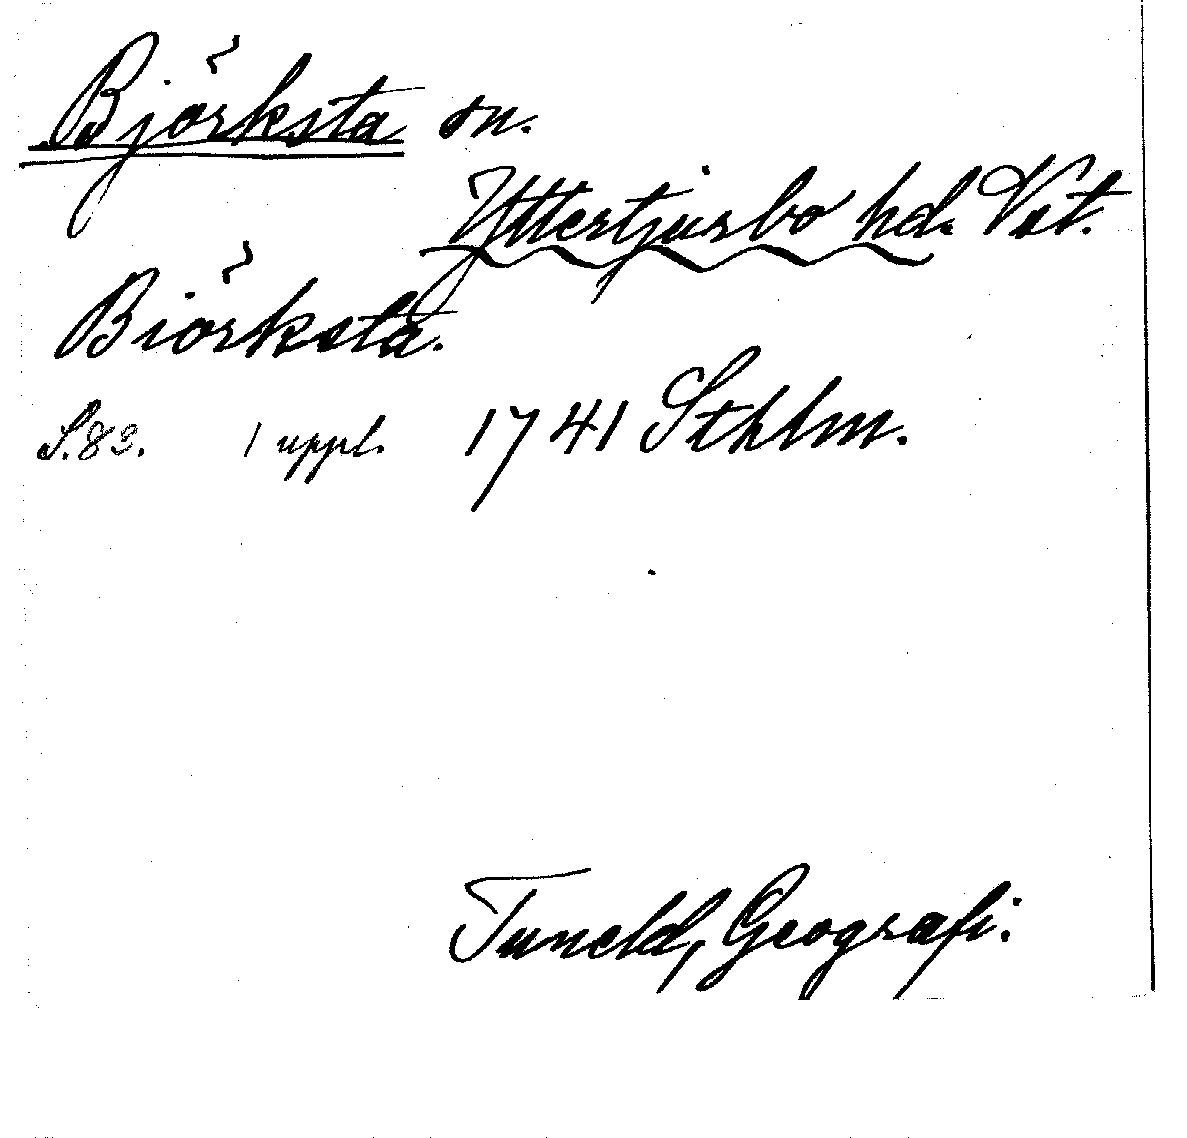 Björksta sn.
Yttertjurbo hd. Vst.
Biörksta.
S. 83. 1 uppl. 1741 Sthlm.
Tuneld, Geografi.